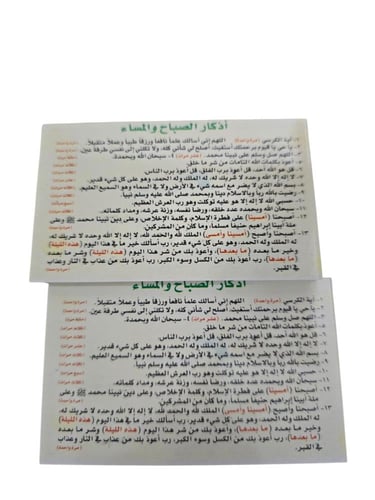 أذكار الصباح والمساء
١- آية الكرسي (مرة واحدة) اللهم إني أسألك علماً نافعاً ورزقاً طيباً وعملاً متقبلاً.
٢- يا حي يا قيوم برحمتك أستغيث، أصلح لي شأني كله، ولا تكلني إلى نفسي طرفة عين.
٣- اللهم صل وسلم على نبينا محمد. (عشر مرات) ٤- سبحان الله وبحمده.
٥- أعوذ بكلمات الله التامات من شر ما خلق. (ثلاث مرات)
٦- قل هو الله أحد، قل أعوذ برب الفلق، قل أعوذ برب الناس. (ثلاث مرات)
٧- لا إله إلا الله وحده لا شريك له، له الملك وله الحمد، وهو على كل شيء قدير.
٨- بسم الله الذي لا يضر مع اسمه شيء في الأرض ولا في السماء وهو السميع العليم.
٩- رضيت بالله رباً وبالإسلام ديناً وبمحمد صلى الله عليه وسلم نبياً.
١٠- حسبي الله لا إله إلا هو عليه توكلت وهو رب العرش العظيم.
١١- سبحان الله وبحمده عدد خلقه، ورضا نفسه، وزنة عرشه، ومداد كلماته.
١٢- أصبحنا (أمسينا) على فطرة الإسلام، وكلمة الإخلاص، وعلى دين نبينا محمد ﷺ وعلى
ملة أبينا إبراهيم حنيفاً مسلماً، وما كان من المشركين.
١٣- أصبحنا وأصبح (أمسينا وأمسى) الملك لله والحمد لله، لا إله إلا الله وحده لا شريك له،
له الملك وله الحمد وهو على كل شيء قدير، رب أسألك خير ما في هذا اليوم (هذه الليلة)
وخير ما بعده (ما بعدها)، وأعوذ بك من شر هذا اليوم (هذه الليلة) وشر ما بعده
(ما بعدها)، رب أعوذ بك من الكسل وسوء الكبر، رب أعوذ بك من عذاب في النار وعذاب
في القبر.
أذكار الصباح والمساء
١- آية الكرسي (مرة واحدة) اللهم إني أسألك علماً نافعاً ورزقاً طيباً وعملاً متقبلاً.
٢- يا حي يا قيوم برحمتك أستغيث، أصلح لي شأني كله، ولا تكلني إلى نفسي طرفة عين.
٣- اللهم صل وسلم على نبينا محمد. (عشر مرات) ٤- سبحان الله وبحمده.
٥- أعوذ بكلمات الله التامات من شر ما خلق. (ثلاث مرات)
٦- قل هو الله أحد، قل أعوذ برب الفلق، قل أعوذ برب الناس. (ثلاث مرات)
٧- لا إله إلا الله وحده لا شريك له، له الملك وله الحمد، وهو على كل شيء قدير.
٨- بسم الله الذي لا يضر مع اسمه شيء في الأرض ولا في السماء وهو السميع العليم.
٩- رضيت بالله رباً وبالإسلام ديناً وبمحمد صلى الله عليه وسلم نبياً.
١٠- حسبي الله لا إله إلا هو عليه توكلت وهو رب العرش العظيم.
١١- سبحان الله وبحمده عدد خلقه، ورضا نفسه، وزنة عرشه، ومداد كلماته.
١٢- أصبحنا (أمسينا) على فطرة الإسلام، وكلمة الإخلاص، وعلى دين نبينا محمد ﷺ وعلى
ملة أبينا إبراهيم حنيفاً مسلماً، وما كان من المشركين.
١٣- أصبحنا وأصبح (أمسينا وأمسى) الملك لله والحمد لله، لا إله إلا الله وحده لا شريك له،
له الملك وله الحمد وهو على كل شيء قدير، رب أسألك خير ما في هذا اليوم (هذه الليلة)
وخير ما بعده (ما بعدها)، وأعوذ بك من شر هذا اليوم (هذه الليلة) وشر ما بعده
(ما بعدها)، رب أعوذ بك من الكسل وسوء الكبر، رب أعوذ بك من عذاب في النار وعذاب
في القبر.